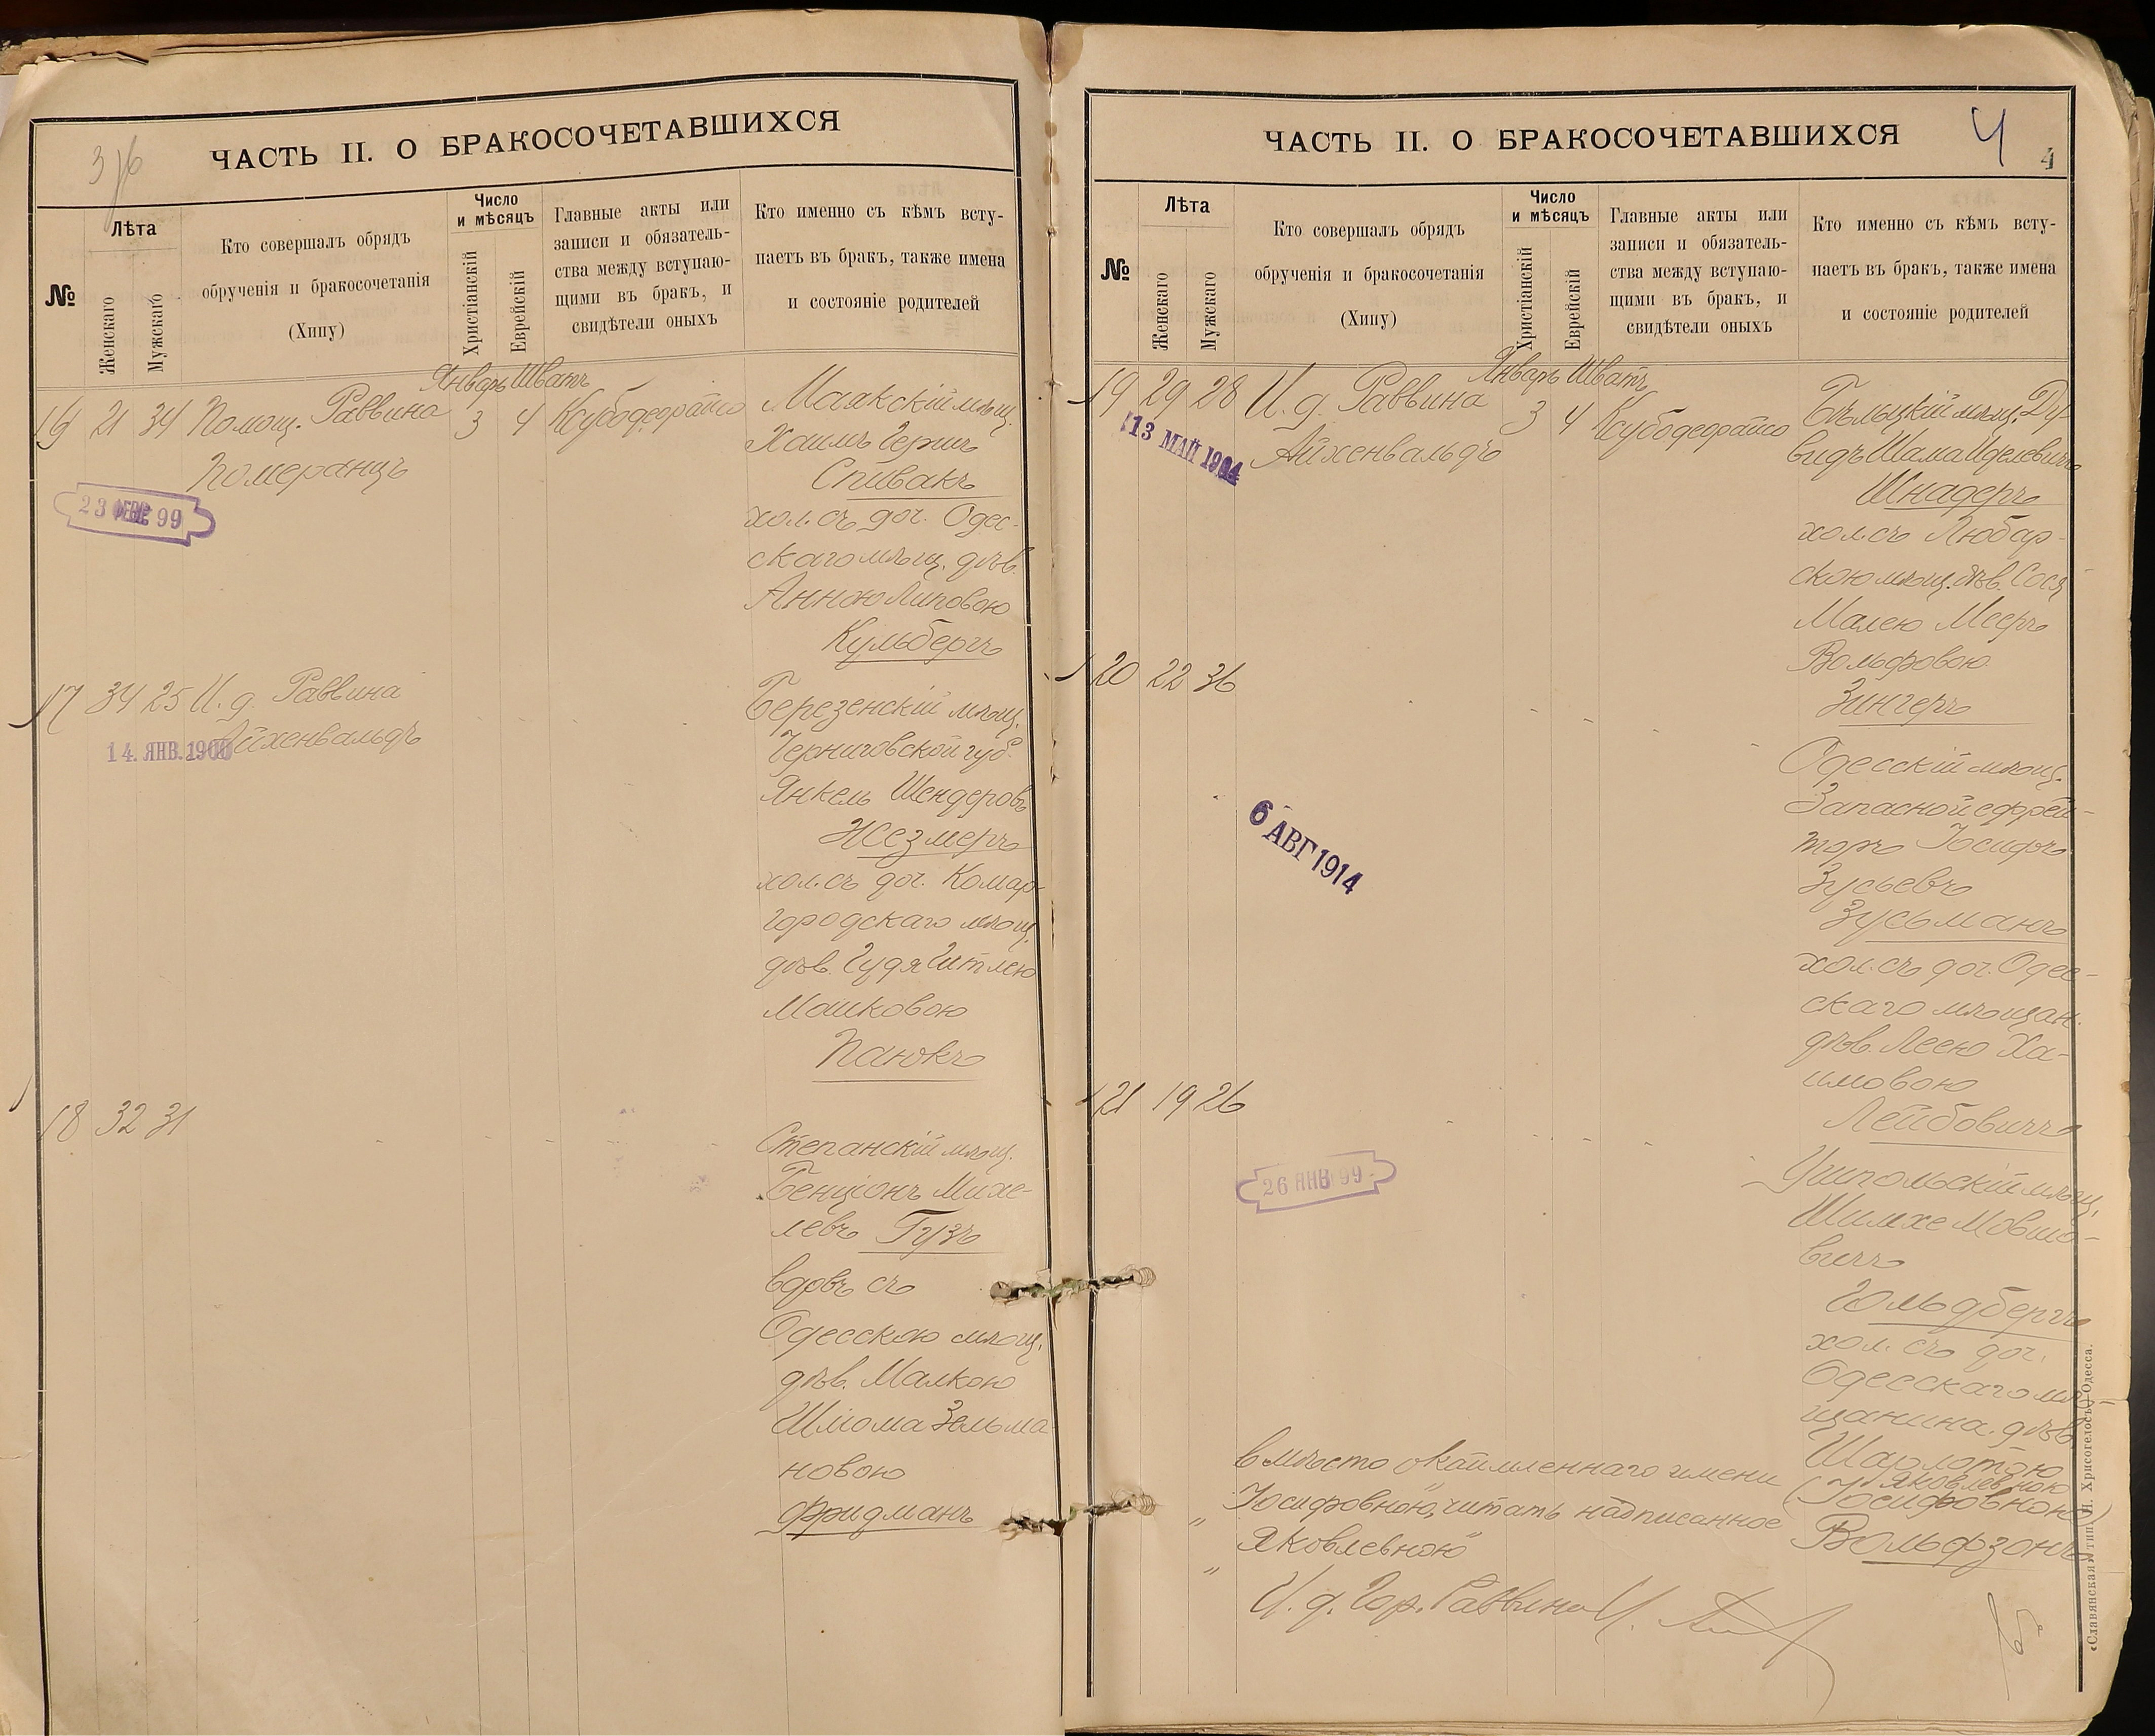 ЧАСТЬ II. О БРАКОСОЧЕТАВШИХСЯ
№
Лѣта
Женскаго
Мужскаго
Кто совершалъ обрядъ
обрученія и бракосочетанія
(Хипу)
Число
и мѣсяцъ
Христіанскій
Еврейскій
Главные акты или
записи и обязатель-
ства между вступаю-
щими въ бракъ, и
свидѣтели оныхъ
Кто именно съ кѣмъ всту-
паетъ въ бракъ, также имена
и состояніе родителей
Январь Шватъ
16 21 34 Помощ. Раввина 3 4 Ксубодеорайсо
Померанцъ
23 ФЕВР 99
Маякскій мѣщ.
Хаимъ Гершъ
Спивакъ
хол. съ доч. Одес-
скаго мѣщ. дѣв.
Анною Липовою
Кульбергъ
17 34 25 И. д. Раввина
Айхенвальдъ
14. ЯНВ. 1900
Березенскій мѣщ.
Черниговской губ.
Янкель Шендеровъ
Жезмеръ
хол. съ доч. Комар-
городскаго мѣщ.
дѣв. Гудя Гитлею
Машковою
Паюкъ
18 32 31
Степанскій мѣщ.
Бенціонъ Михе-
левъ Гузъ
вдовъ съ
Одесскою мѣщ.
дѣв. Малкою
Шлома Зельма-
новою
Фридманъ
ЧАСТЬ II. О БРАКОСОЧЕТАВШИХСЯ
4
4
№
Лѣта
Женскаго
Мужскаго
Кто совершалъ обрядъ
обрученія и бракосочетанія
(Хипу)
Число
и мѣсяцъ
Христіанскій
Еврейскій
Главные акты или
записи и обязатель-
ства между вступаю-
щими въ бракъ, и
свидѣтели оныхъ
Кто именно съ кѣмъ всту-
паетъ въ бракъ, также имена
и состояніе родителей
Январь Шватъ
19 29 28 И. д. Раввина 3 4 Ксубодеорайсо
Айхенвальдъ
13 МАЙ 1904
Бѣльцкій мѣщ. Ду-
видъ Шама Иделевичъ
Шнадеръ
хол. съ Любар-
скою мѣщ. дѣв. Сося
Малею Мееръ
Вольфовою
Зингеръ
20 22 36
6 АВГ 1914
Одесскій мѣщ.
Запасной ефрей-
торъ Іосифъ
Зусьевъ
Зусьманъ
хол. съ доч. Одес-
скаго мѣщан.
дѣв. Леею Ха-
имовою
Лейбовичъ
21 19 26
26 ЯНВ 99
Ушпольскій мѣщ.
Шимхе Мовшо-
вичъ
Гольдбергъ
хол. съ доч.
Одесскаго мѣ-
щанина. дѣв.
Шарлотою
Яковлевною
(Іосифовною)
Вольфзонъ
вмѣсто окаймленнаго имени
„Іосифовною", читать надписанное
„Яковлевною"
И. д. Гор. Раввина
«Славянская» тип. Н. Хрисогелосъ, Одесса.